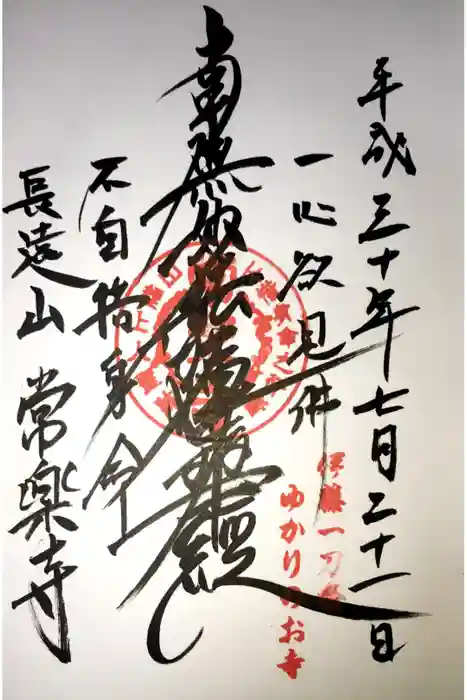 平成三十年七月二十一日
一心欲見佛
南無妙法蓮華経
不自惜身命
長遠山 常樂寺
伊藤一刀斎
ゆかりのお寺